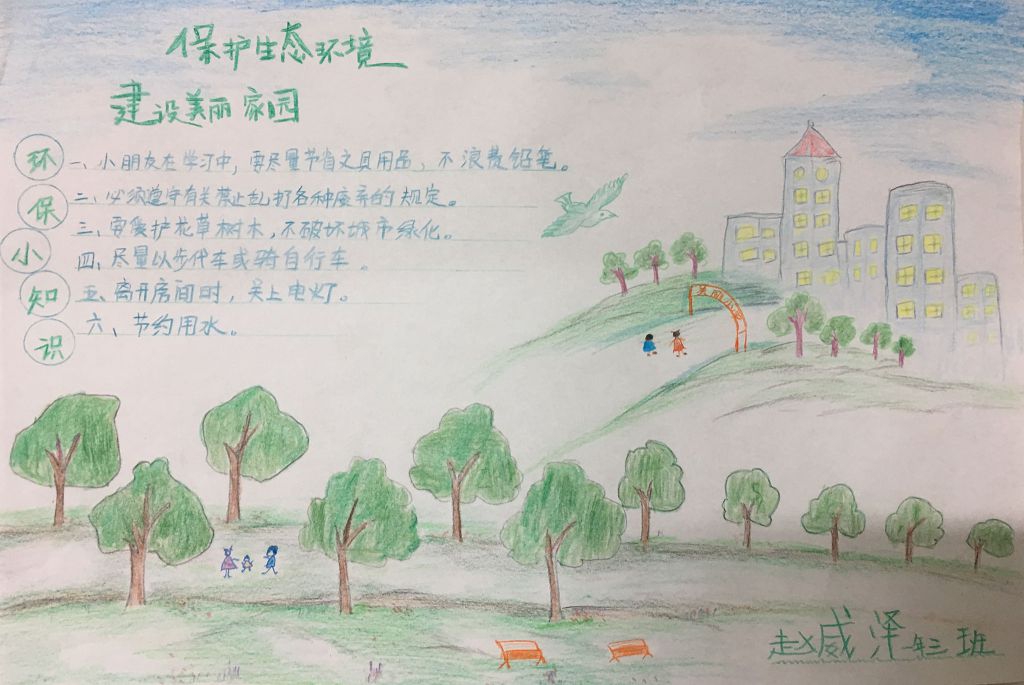 保护生态环境
建设美丽家园
环保小知识
一、小朋友在学习中,要尽量节省文具用品,不浪费铅笔。
二、必须遵守有关禁止乱扔各种废弃的规定。
三、要爱护花草树木,不破坏城市绿化。
四、尽量以步代车或骑自行车。
五、离开房间时,关上电灯。
六、节约用水。
美丽小
赵威泽 一年三班